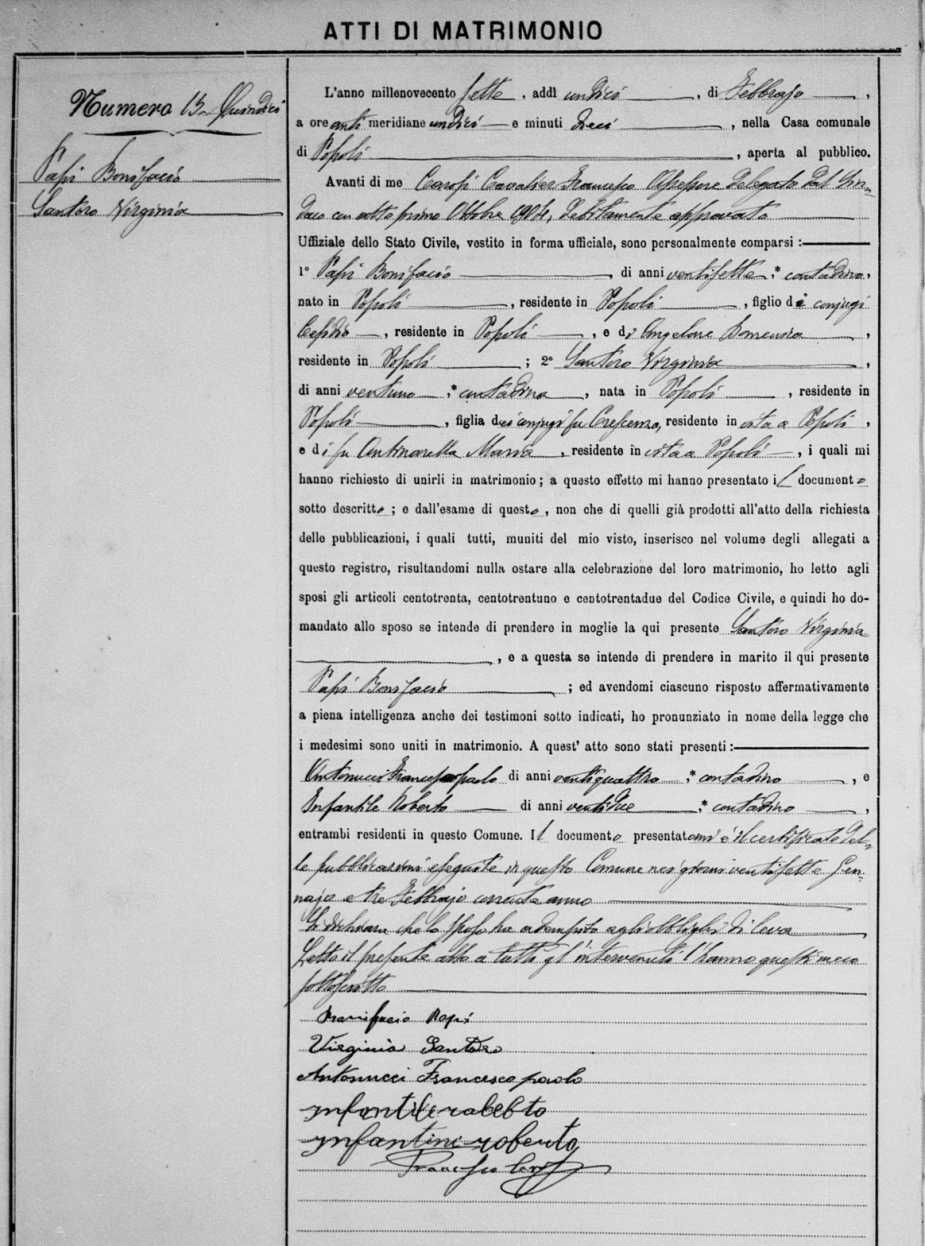 ATTI DI MATRIMONIO
Numero 15 Quindici
Papi Bonifacio
Santoro Virginia
L'anno millenovecento sette, addì undici, di Febbrajo,
a ore anti meridiane undici e minuti dieci, nella Casa comunale
di Popoli, aperta al pubblico.
Avanti di me Cavalier Francesco Assessore delegato dal Sin-
daco con atto primo Ottobre 1906, debitamente approvato
Uffiziale dello Stato Civile, vestito in forma ufficiale, sono personalmente comparsi :
1° Papi Bonifacio, di anni ventisette ;* contadino,
nato in Popoli, residente in Popoli, figlio di conjugi
residente in Popoli, e di Angelone Domenica,
residente in Popoli ; 2° Santoro Virginia,
di anni ventuno ;* contadina, nata in Popoli, residente in
Popoli, figlia dei conjugi fu Crescenzo, residente in vita a Popoli,
e di fu Antonarella Maria, residente in vita a Popoli, i quali mi
hanno richiesto di unirli in matrimonio ; a questo effetto mi hanno presentato il documento
sotto descritto ; e dall'esame di questo, non che di quelli già prodotti all'atto della richiesta
delle pubblicazioni, i quali tutti, muniti del mio visto, inserisco nel volume degli allegati a
questo registro, risultandomi nulla ostare alla celebrazione del loro matrimonio, ho letto agli
sposi gli articoli centotrenta, centotrentuno e centotrentadue del Codice Civile, e quindi ho do-
mandato allo sposo se intende di prendere in moglie la qui presente Santoro Virginia
, e a questa se intende di prendere in marito il qui presente
Papi Bonifacio ; ed avendomi ciascuno risposto affermativamente
a piena intelligenza anche dei testimoni sotto indicati, ho pronunziato in nome della legge che
i medesimi sono uniti in matrimonio. A quest' atto sono stati presenti :
Antonucci Francescopaolo di anni ventiquattro ;* contadino, e
Infantile Roberto di anni ventidue ;* contadino,
entrambi residenti in questo Comune. Il documento presentatomi è il certificato del-
le pubblicazioni eseguite in questo Comune nei giorni ventisette Gen-
najo e tre Febbrajo corrente anno
Si dichiara che lo sposo ha adempito agli obblighi di leva
Letto il presente atto a tutti gl'intervenuti l'hanno questi meco
sottoscritto
Bonifacio Papi
Virginia Santoro
Antonucci Francesco paolo
infantile robebto
infantine roberto